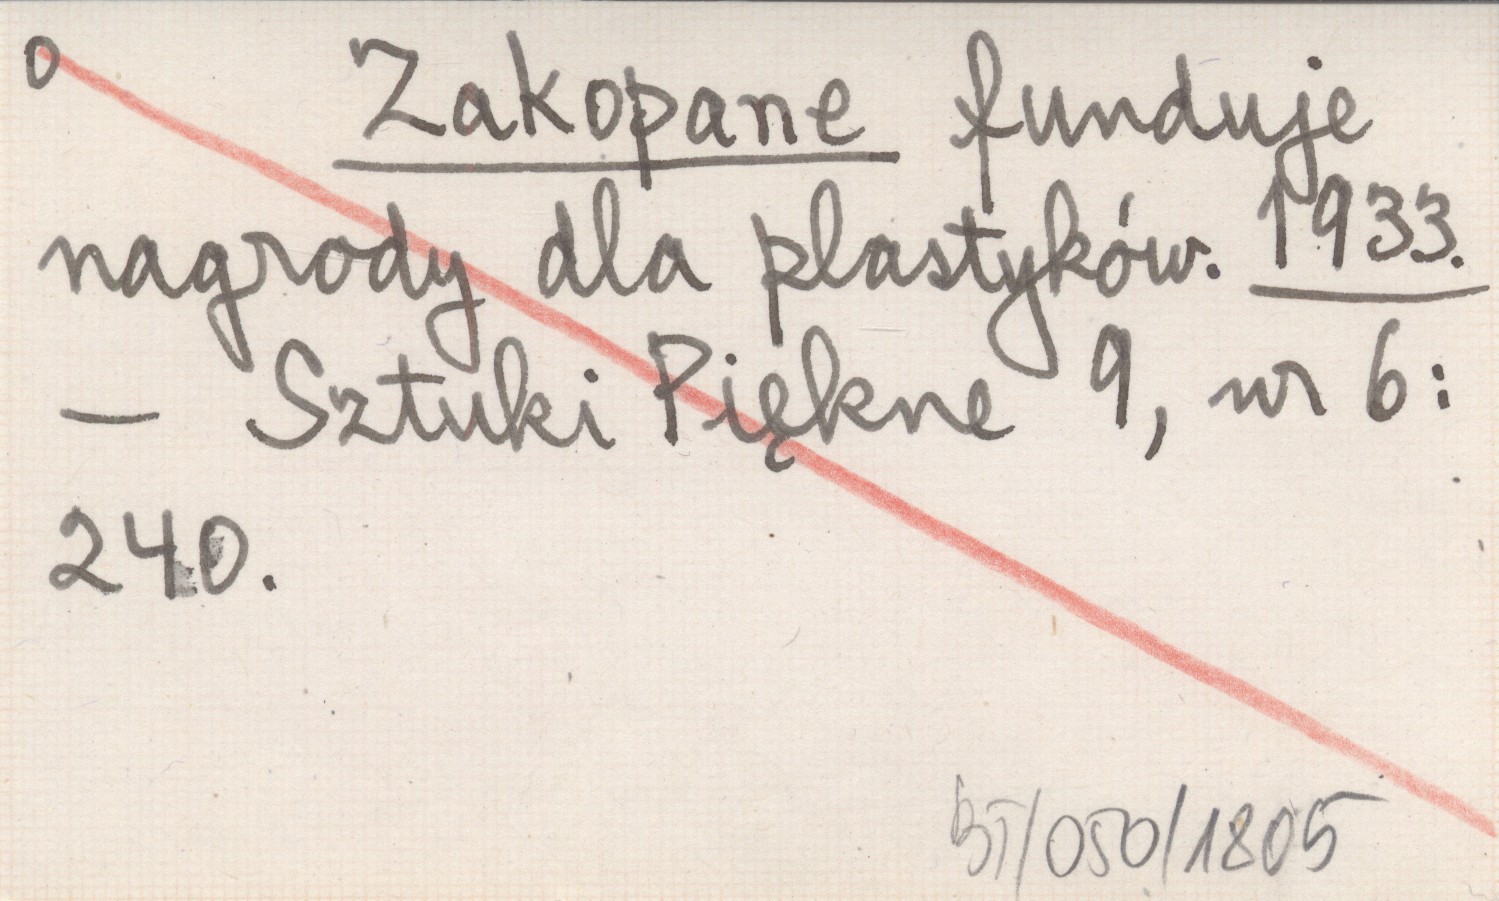 0 Zakopane funduje
nagrody dla plastyków. 1933.
— Sztuki Piękne 9, nr 6:
240.
BT/050/1805